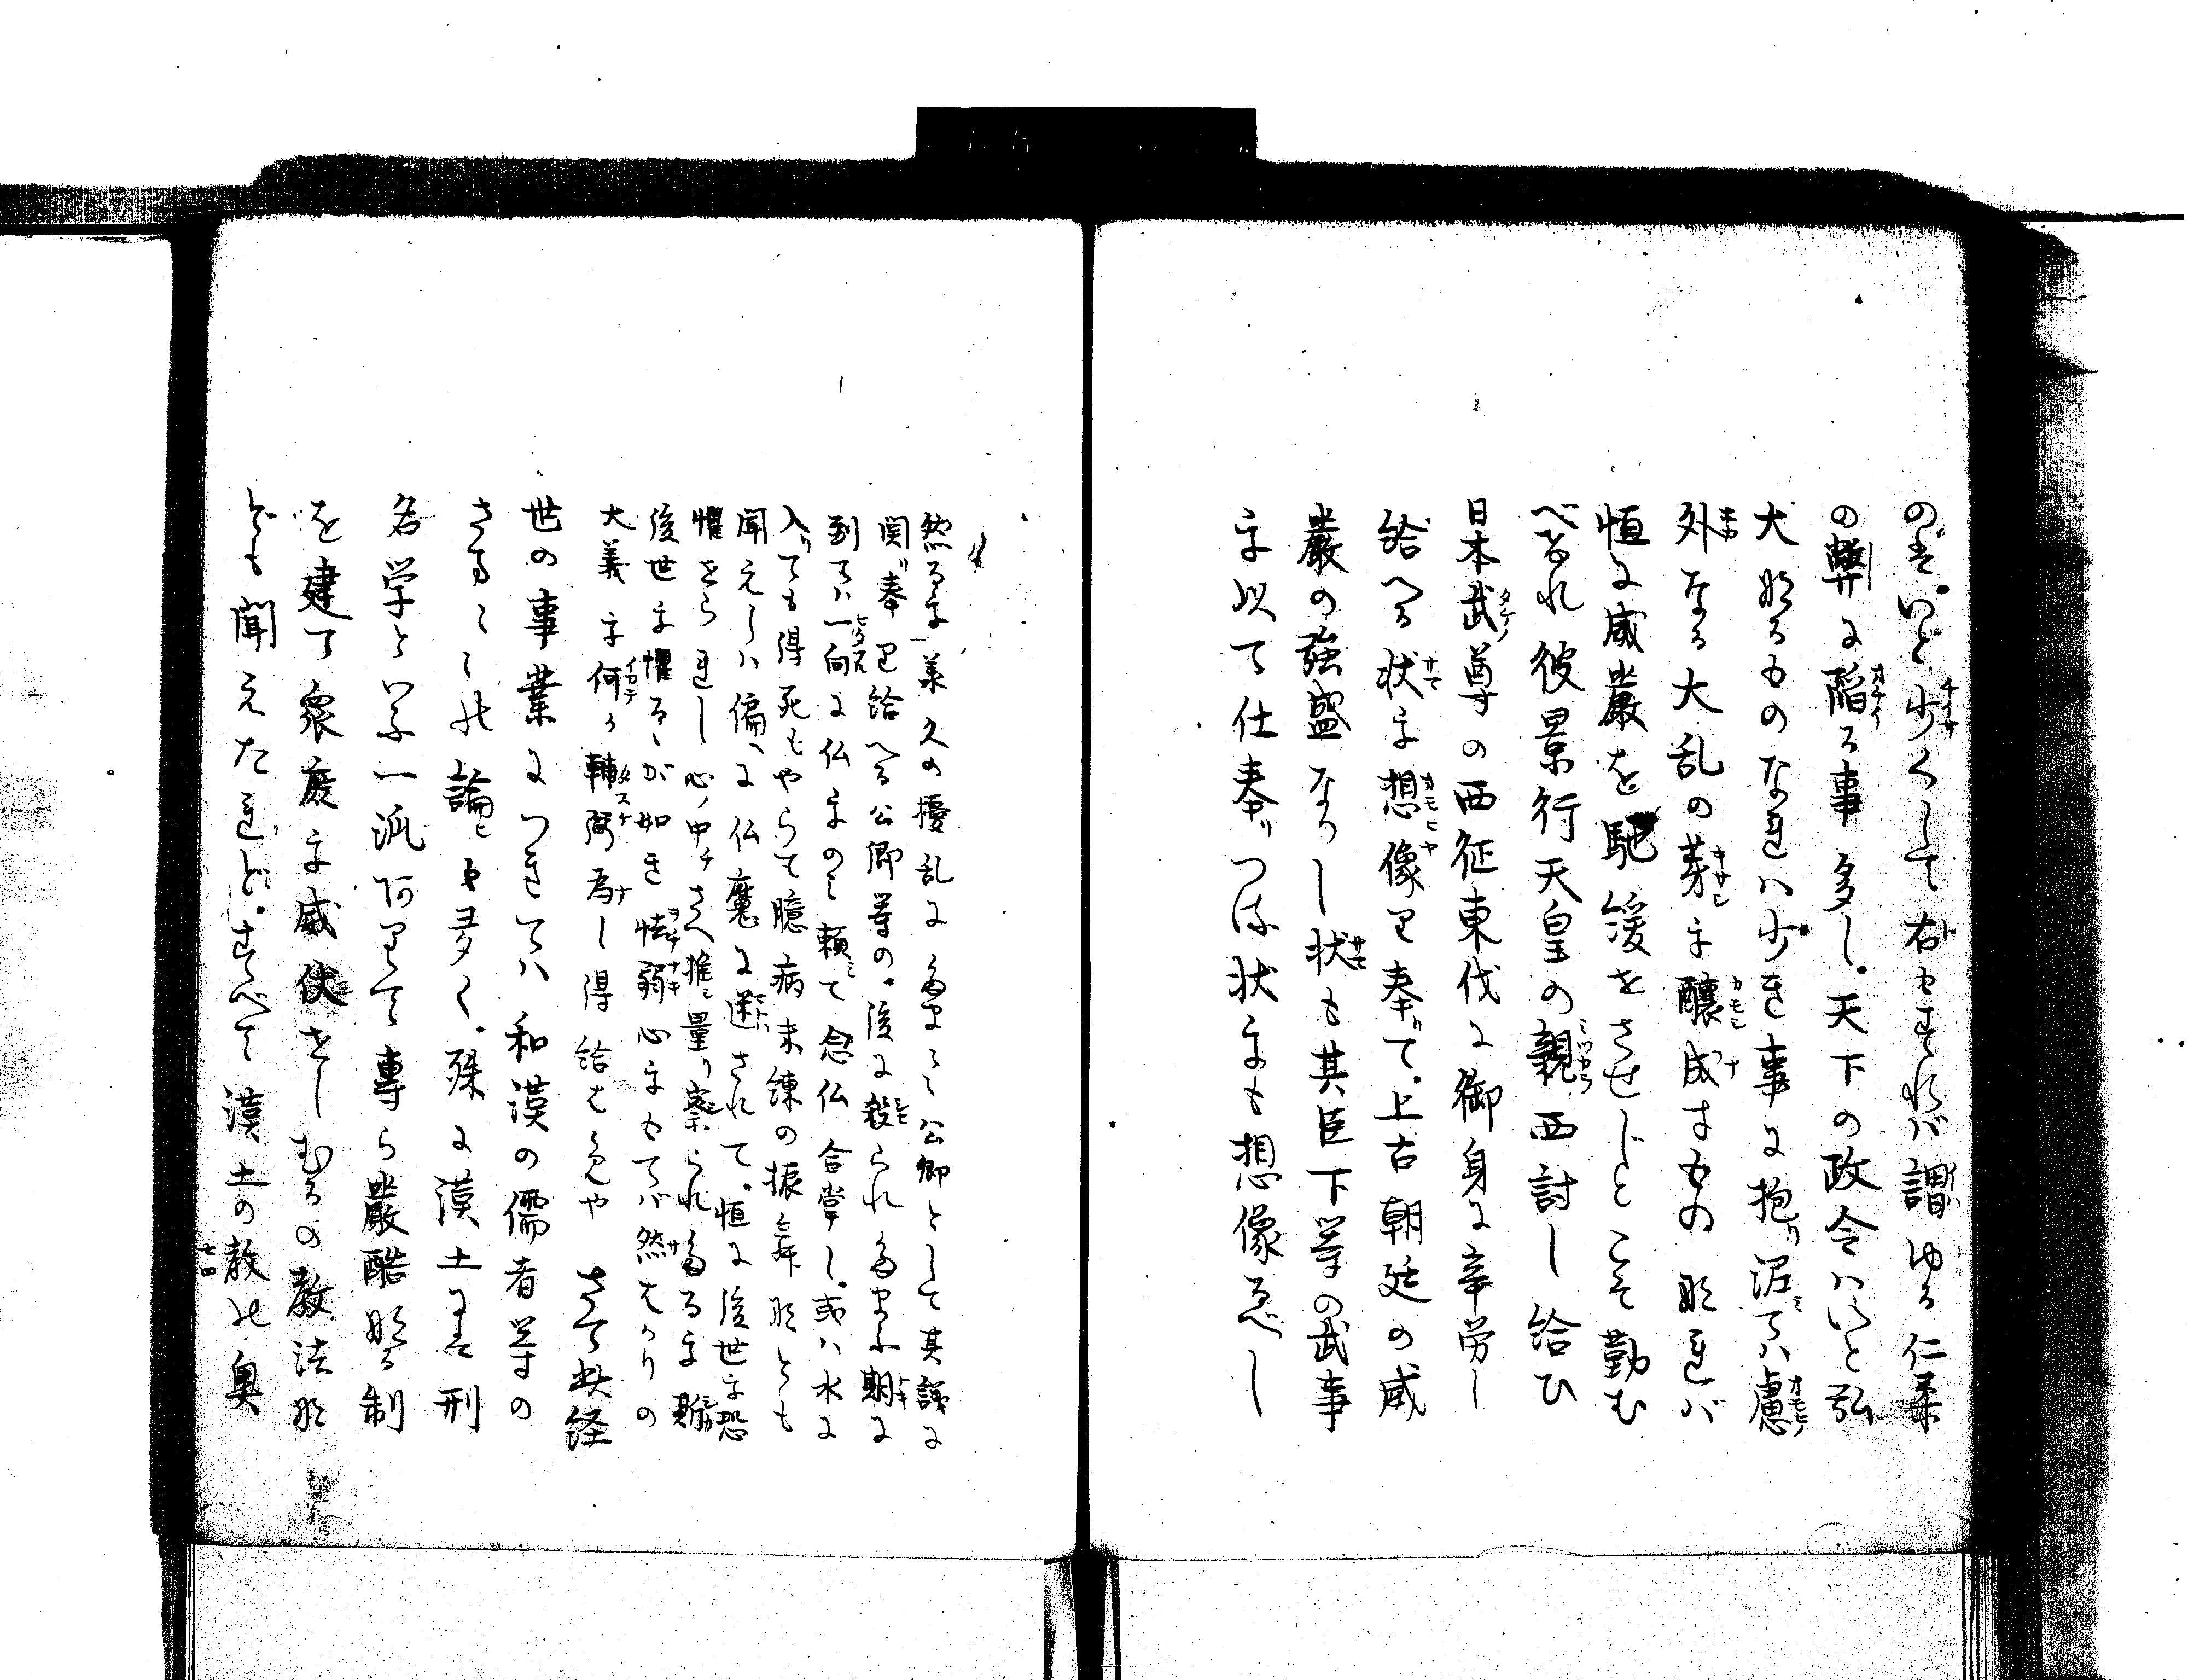 のぞ。いと少くして右ゆゑよすれバ謂ゆる仁柔
の弊に陥る事多し。天下の政令ハいと弘
大なるものなれハ少き事に抱泥てハ慮
外なる大乱の芽を醸成すものなれバ
恒に威厳を馳緩をさせじとこそ勤む
べけれ彼景行天皇の親西討し給ひ
日本武尊の西征東伐に御身に辛労し
給へる状を想像り奉りて。上古朝廷の威
厳の強盛なりし状も其臣下等の武事
を以て仕奉りつる状をも想像るべし
然るを承久の擾乱にあまる公卿として其議に
関り奉り給へる公卿等の。後に殺られたまふ期に
到てハ一向に仏をのミ頼て念仏合掌し。或ハ水に
入りても得死もやらて臆病未練の振舞なとも
聞えしハ偏に仏魔に迷されて。恒に後世を恐
懼せられし心ノ中さへ推量り察られたるを
後世を懼るゝが如き怯弱心をもてバ然はかりの
大義を何か輔弼為し得給はむや さて此経
世の事業につきてハ和漢の儒者等の
さる論ヒ多く。殊に漢土には刑
名学といふ一派ありて専ら厳酷なる制
を建て衆庶を威伏せしむるの教法な
ども聞えたれど。すべて漢土の教の奥